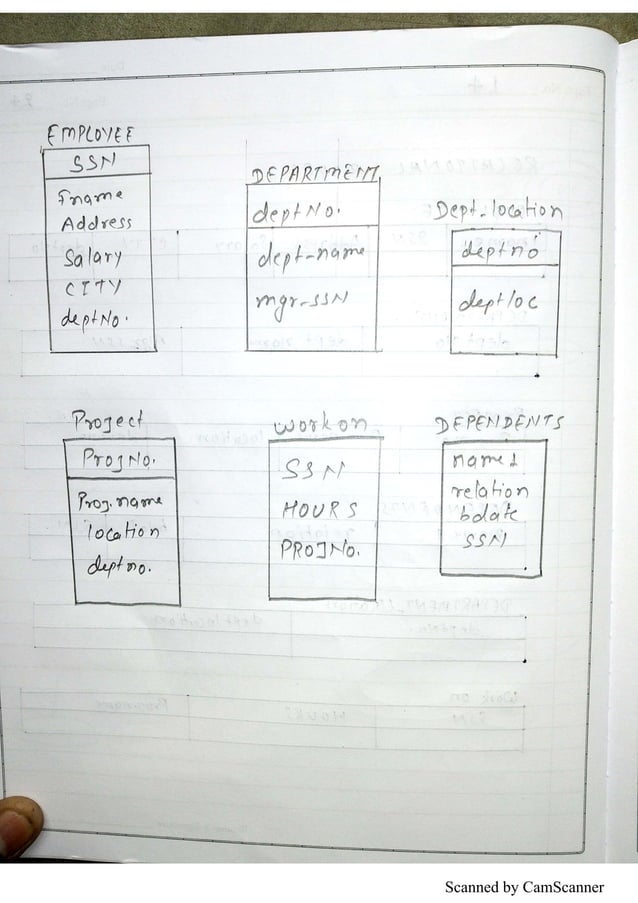 EMPLOYEE
SSN
Fname
Address
Salary
CITY
deptNo.
DEPARTMENT
deptNo.
dept-name
mgr-SSN
Dept-location
deptno
deptloc
Project
ProjNo.
Proj.name
location
deptno.
work on
SSN
HOURS
PROJNo.
DEPENDENTS
relation
bdate
SSN
Scanned by CamScanner